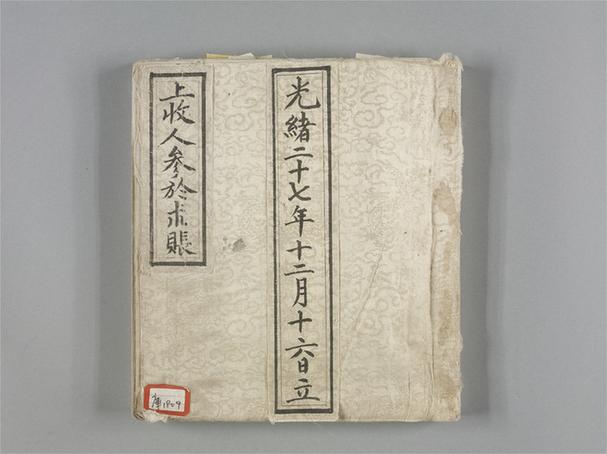 光緒二十七年十二月十六日立
上收人參於朮賬
庫1804